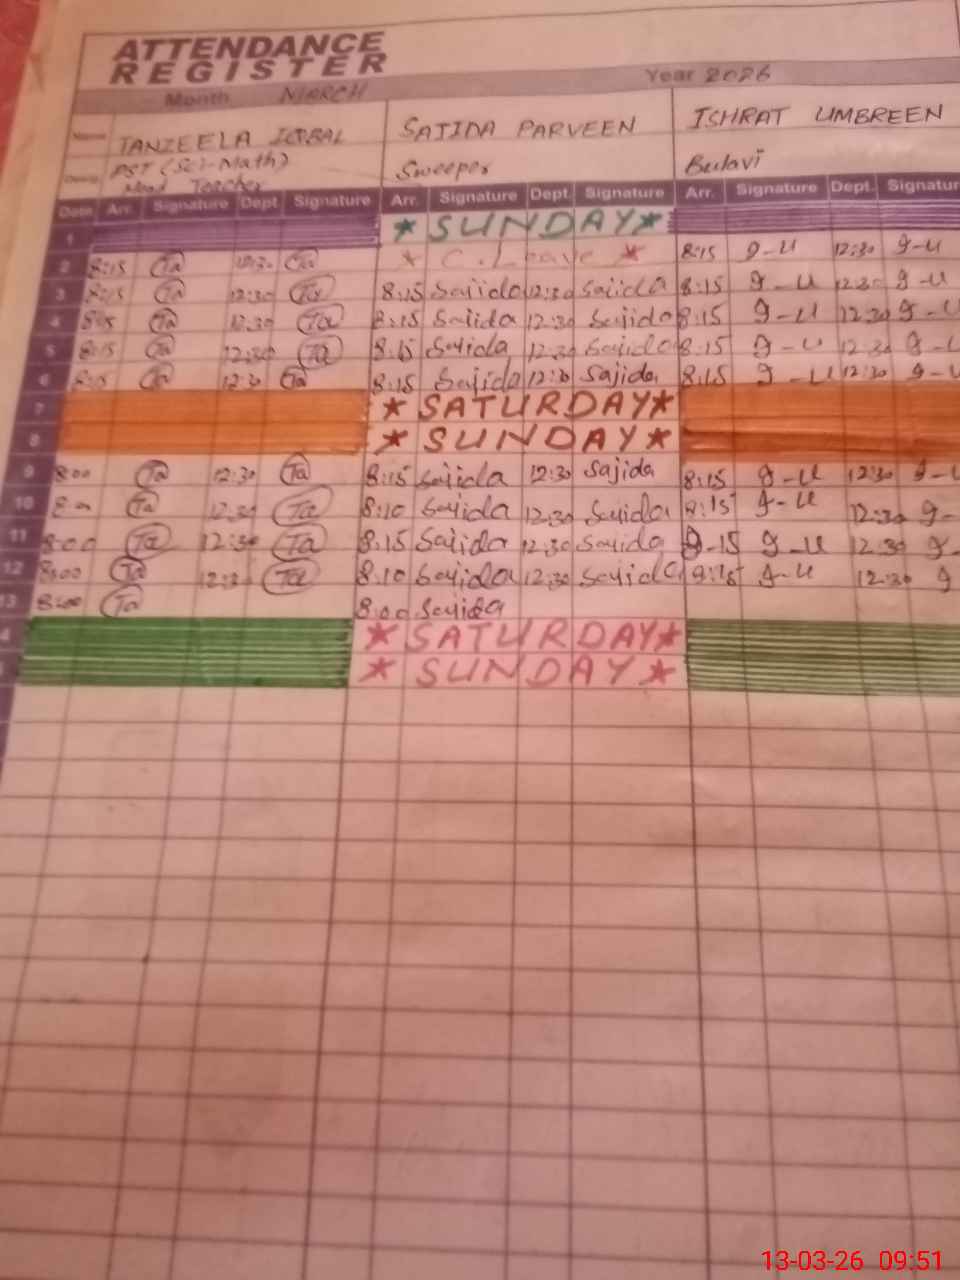 ATTENDANCE
REGISTER
Month MARCH Year 2026
Name TANZEELA IQBAL SAJIDA PARVEEN ISHRAT UMBREEN
PST (Sci-Math) Sweeper Bulavi
Head Teacher
Date Arr. Signature Dept. Signature Arr. Signature Dept. Signature Arr. Signature Dept. Signatur
1 * SUNDAY *
2 8:15 Ta 12:30 Ta * C. Leave * 8:15 g-u 12:30 g-u
3 8:15 Ta 12:30 Ta 8:15 Sajida 12:30 Sajida 8:15 g-u 12:30 g-u
4 8:15 Ta 12:30 Ta 8:15 Sajida 12:30 Sajida 8:15 g-u 12:30 g-u
5 8:15 Ta 12:30 Ta 8:15 Sajida 12:30 Sajida 8:15 g-u 12:30 g-u
6 8:15 Ta 12:30 Ta 8:15 Sajida 12:30 Sajida 8:15 g-u 12:30 g-u
7 * SATURDAY *
8 * SUNDAY *
9 8:00 Ta 12:30 Ta 8:15 Sajida 12:30 Sajida 8:15 g-u 12:30 g-u
10 8:00 Ta 12:30 Ta 8:10 Sajida 12:30 Sajida 8:15 g-u 12:30 g-
11 8:00 Ta 12:30 Ta 8:15 Sajida 12:30 Sajida 8-15 g-u 12:30 g-
12 8:00 Ta 12:30 Ta 8:10 Sajida 12:30 Sajida 8:15 g-u 12:30 g
13 8:00 Ta 8:00 Sajida
4 * SATURDAY *
* SUNDAY *
13-03-26 09:51